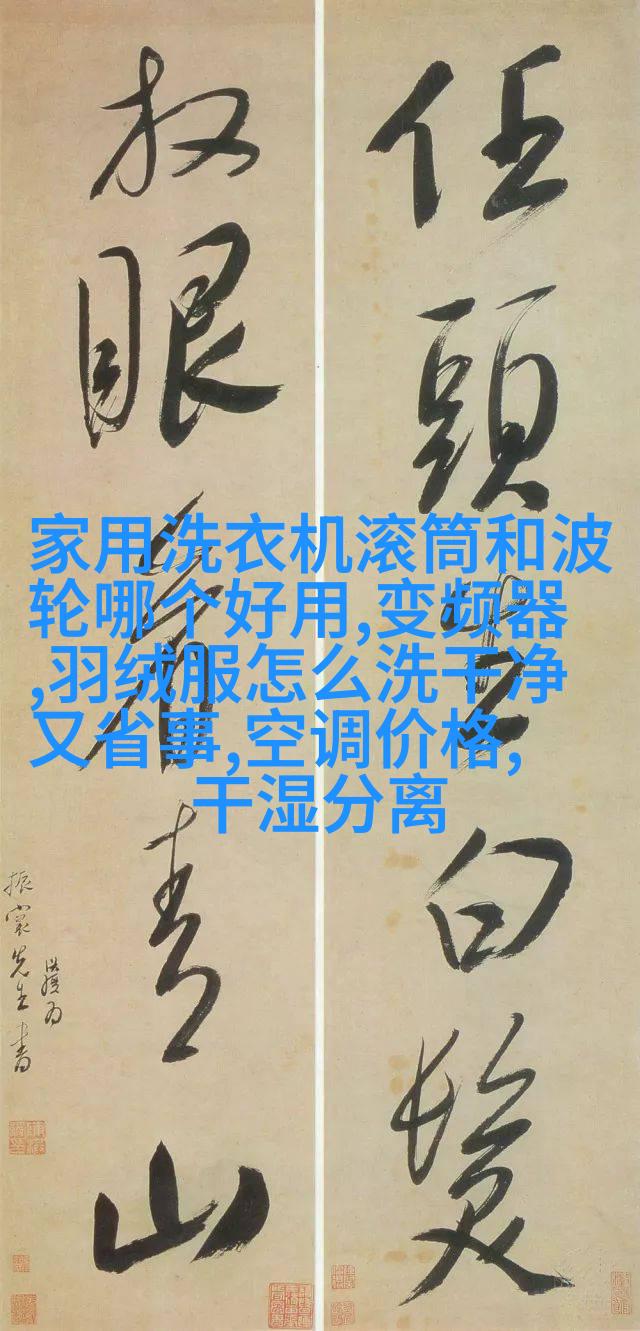 任頭生白髮
放眼看青山
振裳先生書
家用洗衣机滚筒和波
轮哪个好用,变频器
,羽绒服怎么洗干净
又省事,空调价格,
干湿分离